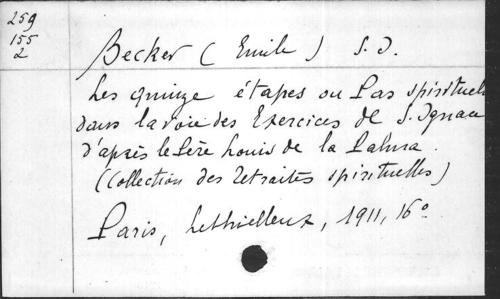 259
155
2
Becker (Emile) S.J.
Les quinze étapes ou Pas spirituels
dans la voie des Exercices de S. Ignace
d'après le Père Louis de la Palma.
(Collection des retraites spirituelles)
Paris, Lethielleux, 1911, 16°